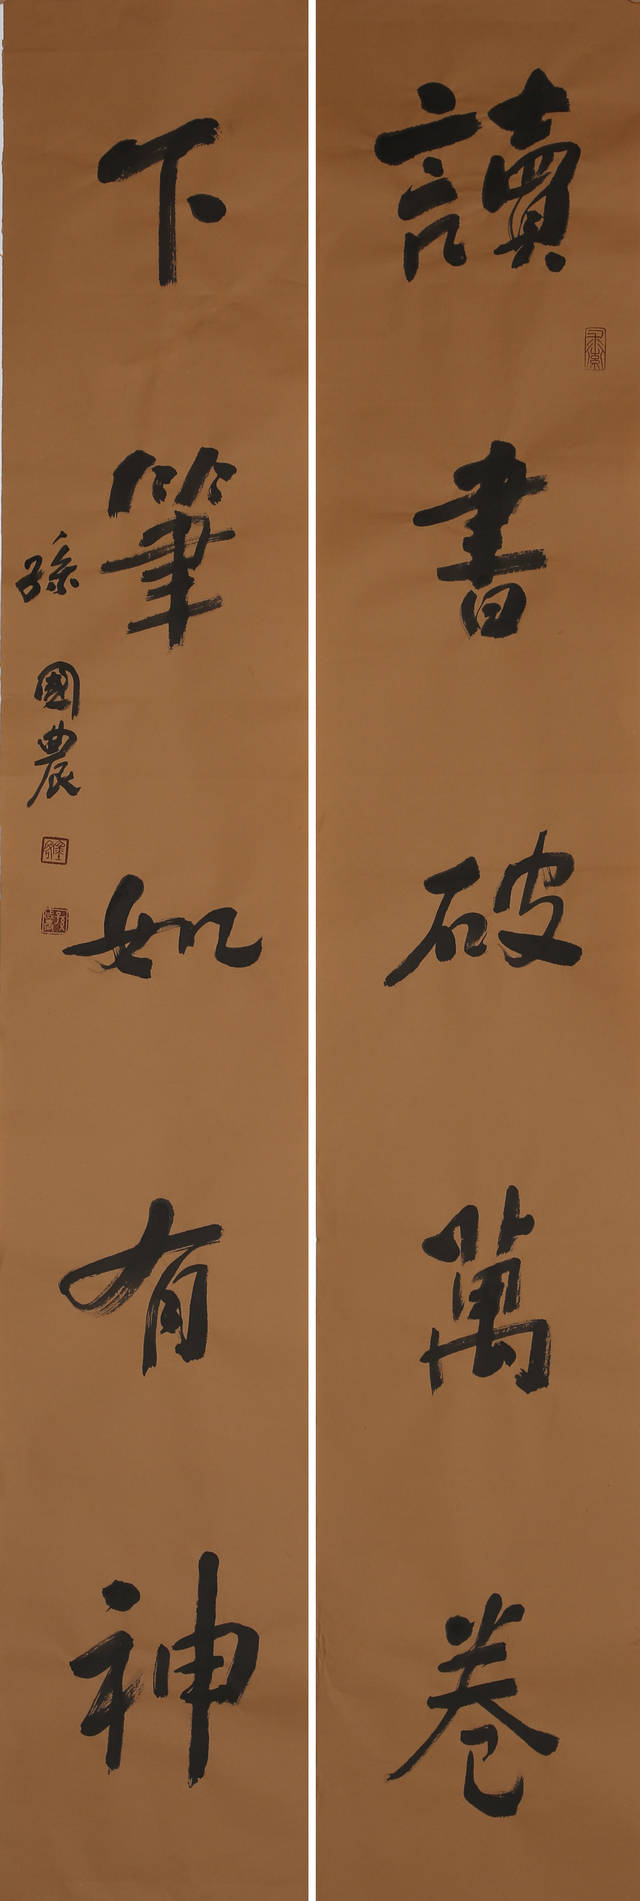 讀書破萬卷
下筆如有神
孫國農